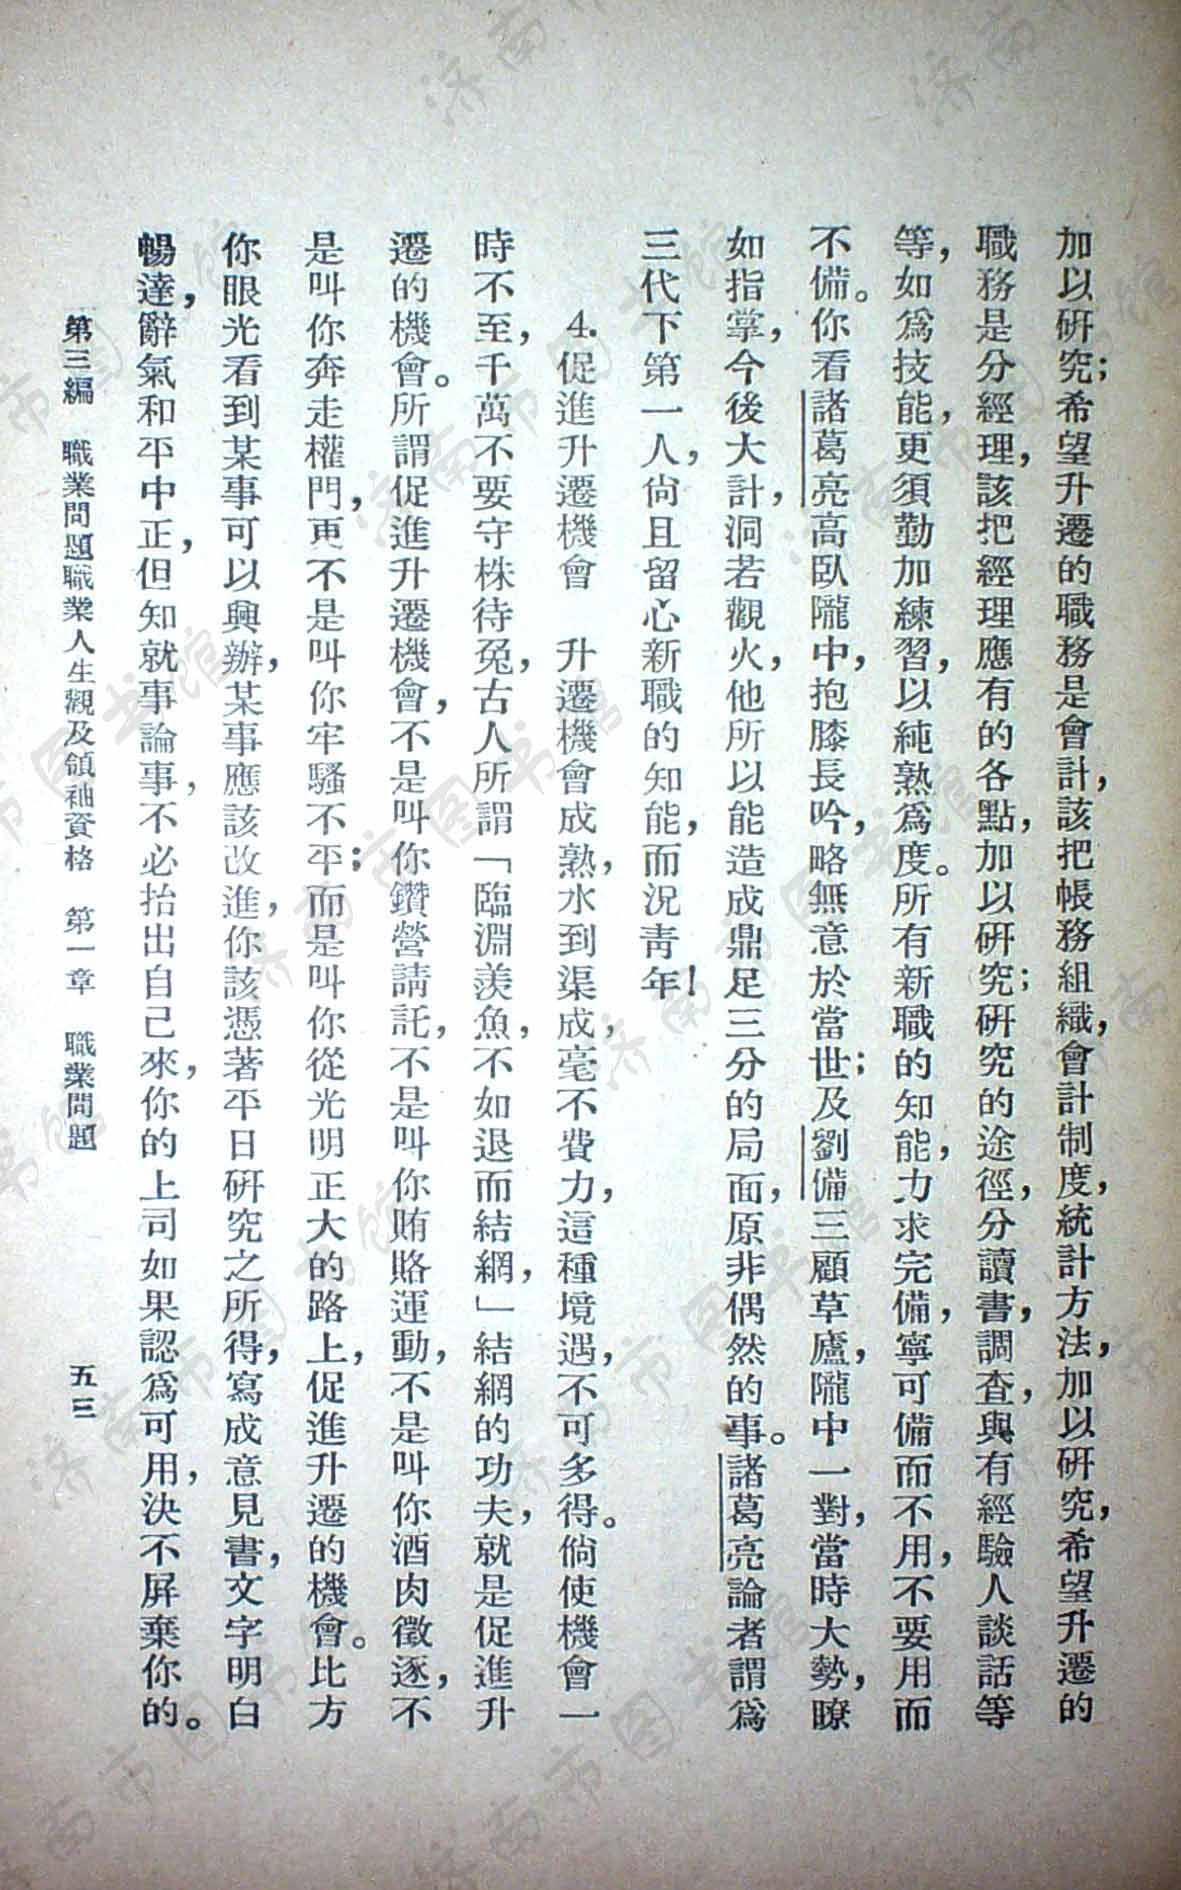 加以研究；希望升遷的職務是會計，該把帳務組織，會計制度，統計方法，加以研究，希望升遷的
職務是分經理，該把經理應有的各點，加以研究；研究的途徑，分讀書，調查，與有經驗人談話等
等，如爲技能，更須勤加練習，以純熟爲度。所有新職的知能，力求完備，寧可備而不用，不要用而
不備。你看諸葛亮高臥隴中，抱膝長吟，略無意於當世；及劉備三顧草廬，隴中一對，當時大勢，瞭
如指掌，今後大計，洞若觀火，他所以能造成鼎足三分的局面，原非偶然的事。諸葛亮論者謂爲
三代下第一人，尙且留心新職的知能，而況靑年！
4.促進升遷機會　升遷機會成熟，水到渠成，毫不費力，這種境遇，不可多得。倘使機會一
時不至，千萬不要守株待兔，古人所謂「臨淵羨魚，不如退而結網，」結網的功夫，就是促進升
遷的機會。所謂促進升遷機會，不是叫你鑽營請託，不是叫你賄賂運動，不是叫你酒肉徵逐，不
是叫你奔走權門，更不是叫你牢騷不平；而是叫你從光明正大的路上，促進升遷的機會。比方
你眼光看到某事可以興辦，某事應該改進，你該憑著平日研究之所得，寫成意見書，文字明白
暢達，辭氣和平中正，但知就事論事，不必抬出自己來，你的上司如果認爲可用，決不屏棄你的。
第三編　職業問題職業人生觀及領袖資格　第一章　職業問題　五三
济南市图书馆